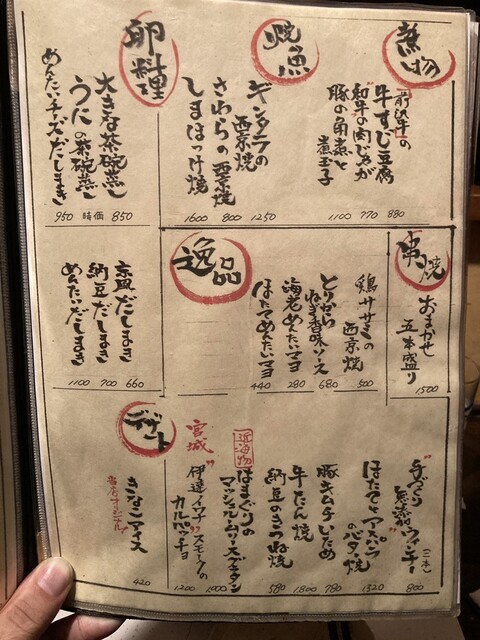 煮物
“前沢牛”の
牛すじ豆腐
“和牛”の肉じゃが
豚の角煮と
煮玉子
880
770
1100
焼魚
ギンダラの
西京焼
さわらの西京焼
しまほっけ焼
1250
800
1600
卵料理
大きな茶碗蒸し
うにの茶碗蒸し
めんたいチーズだしまき
850
時価
950
京風だしまき
納豆だしまき
めんたいだしまき
660
700
1100
串焼
おまかせ
五本盛り
1500
逸品
鶏ササミの
西京焼
とりから
ねぎ香味ソース
海老めんたいマヨ
ほたてめんたいマヨ
500
680
280
440
“手づくり”
無添加ウィンナー
(三本)
ほたてとアスパラ
のバター焼
豚キムチいため
牛たん焼
納豆のきつね焼
近海物
はまぐりの
マッシュルームソースグラタン
宮城
“伊達イワナ”スモークの
カルパッチョ
800
1320
780
1,800
580
1000
1200
デザート
きなこアイス
当店オリジナル!
420